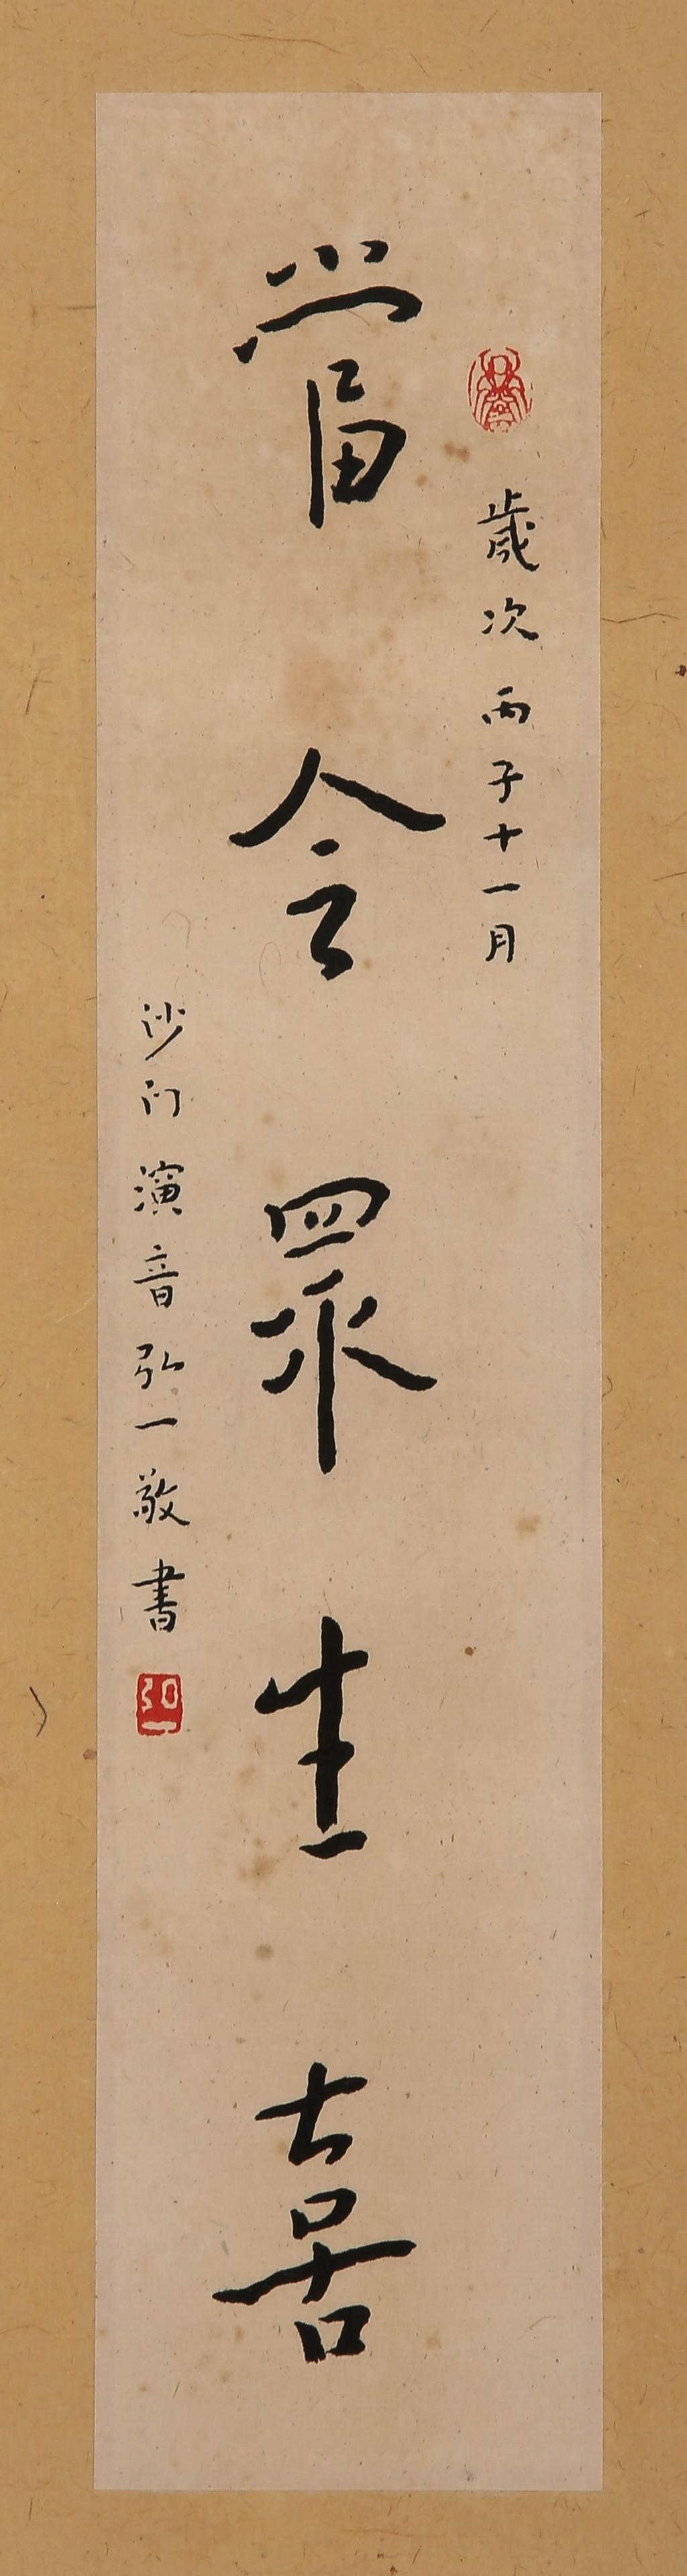 歲次丙子十一月
當令眾生喜
沙門演音弘一敬書
弘一